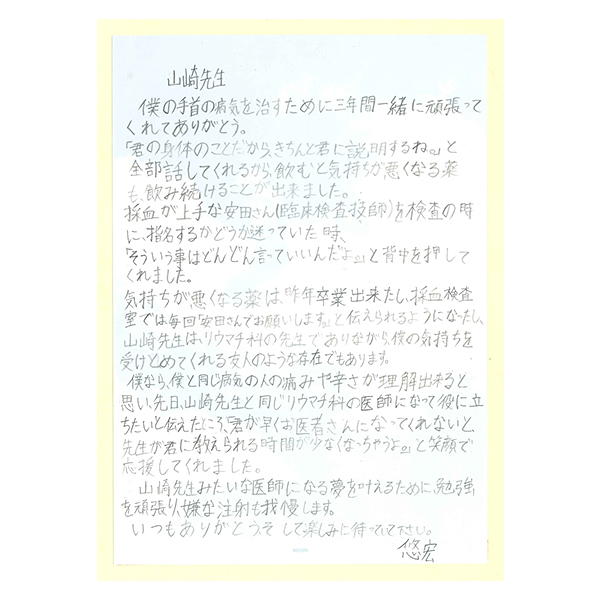 山崎先生
僕の手首の病気を治すために三年間一緒に頑張って
くれてありがとう。
「君の身体のことだから、きちんと君に説明するね。」と
全部話してくれるから、飲むと気持ちが悪くなる薬
も、飲み続けることが出来ました。
採血が上手な安田さん(臨床検査技師)を検査の時
に、指名するかどうか迷っていた時、
「そういう事はどんどん言っていいんだよ。」と背中を押して
くれました。
気持ちが悪くなる薬は、昨年卒業出来たし、採血検査
室では毎回「安田さんでお願いします。」と伝えられるようになったし、
山崎先生は、リウマチ科の先生でありながら、僕の気持ちを
受けとめてくれる友人のような存在でもあります。
僕なら、僕と同じ病気の人の痛みや辛さが理解出来ると
思い、先日、山崎先生と同じリウマチ科の医師になって役に立
ちたいと伝えたところ、「君が早くお医者さんになってくれないと、
先生が君に教えられる時間が少なくなっちゃうよ。」と笑顔で
応援してくれました。
山崎先生みたいな医師になる夢を叶えるために、勉強
を頑張り、嫌な注射も我慢します。
いつもありがとうそして楽しみに待っていて下さい。
悠宏